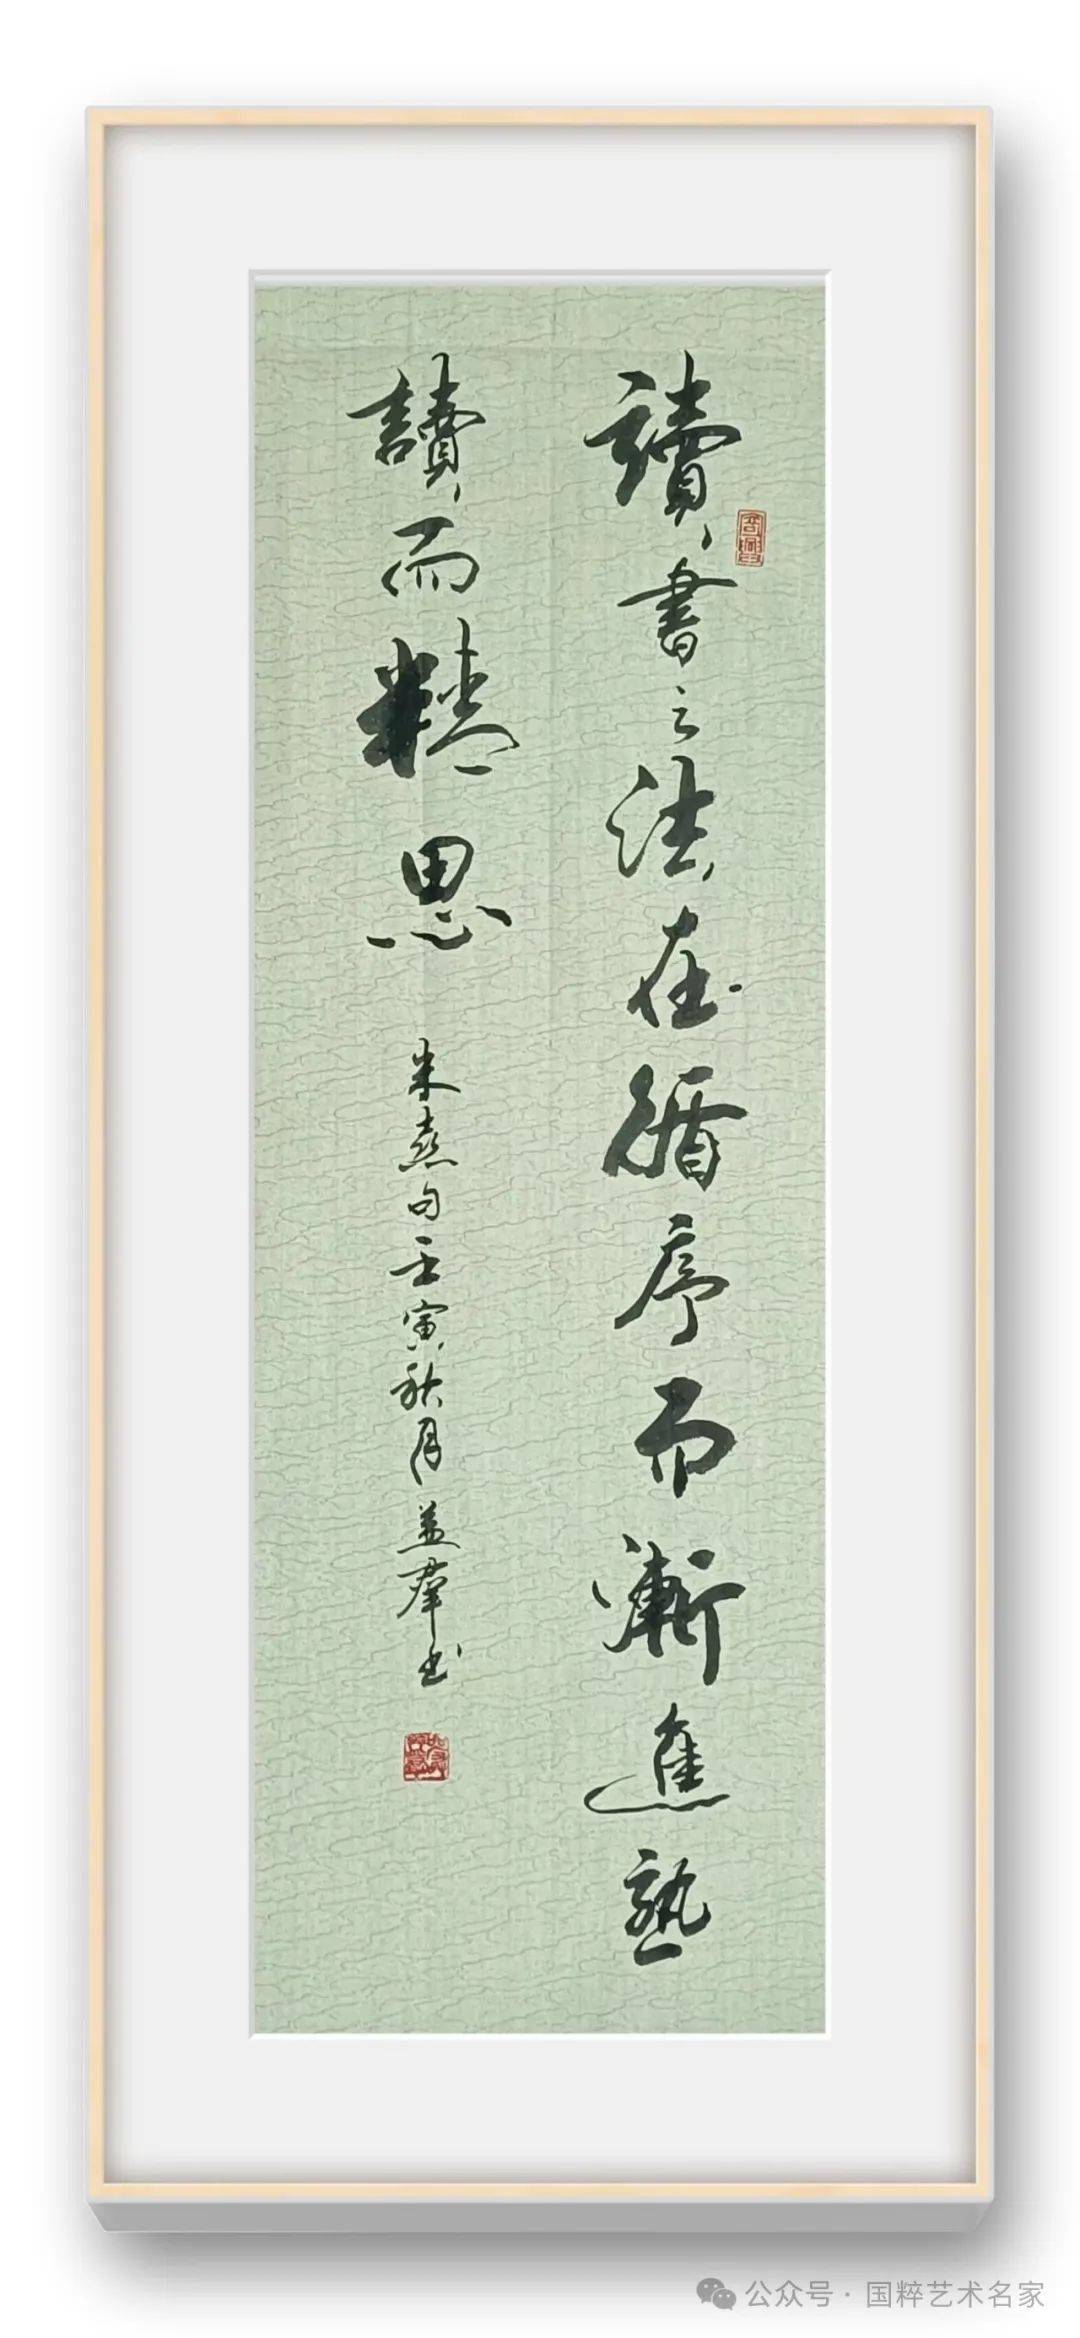 讀書之法在循序而漸進熟
讀而精思
朱熹句壬寅秋月益群书
公众号·国粹艺术名家